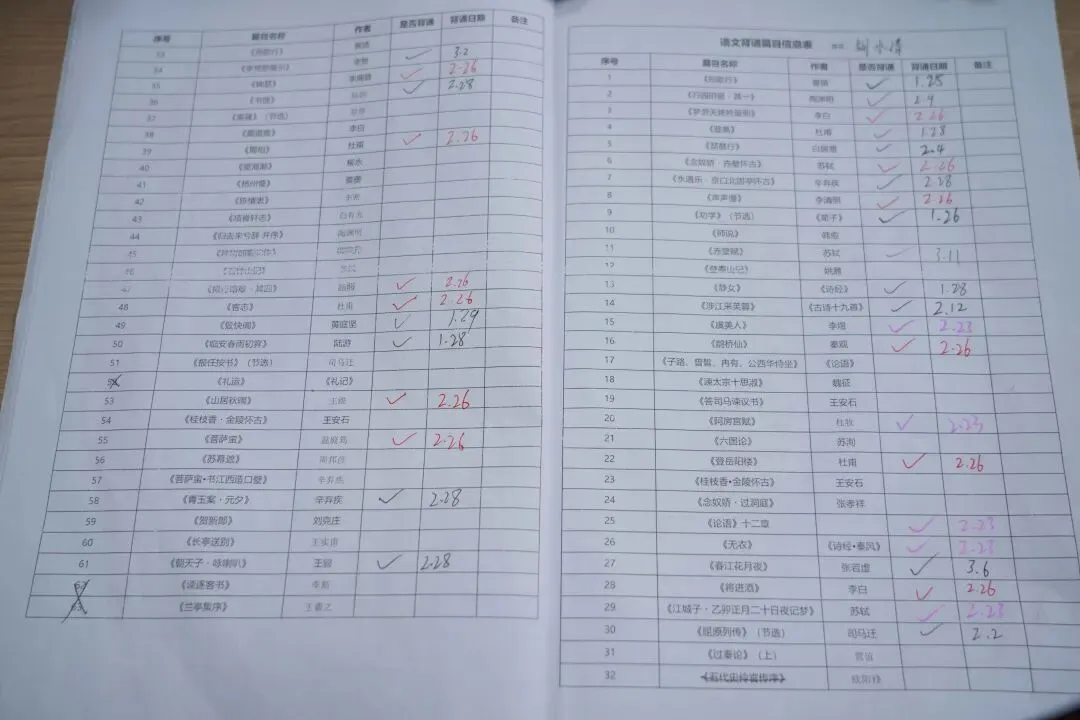 序号 篇目名称 作者 是否背诵 背诵日期 备注
33 《燕歌行》 ✓ 3.2
34 《李凭箜篌引》 李贺 ✓ 2.26
35 ✓ 2.28
36 《书愤》
37 《离骚》（节选）
38 《蜀道难》 李白
39 《蜀相》 杜甫 ✓ 2.26
40 《望海潮》 柳永
41 《扬州慢》 姜夔
42 《陈情表》 李密
43 《项脊轩志》 归有光
44 《归去来兮辞 并序》 陶渊明
45
46 《石钟山记》
47 杜甫 ✓ 2.26
48 《客至》 杜甫 ✓ 2.26
49 《登快阁》 黄庭坚 ✓ 1.29
50 《临安春雨初霁》 陆游 ✓ 1.28
51 《报任安书》（节选） 司马迁
52 《礼运》 《礼记》
53 《山居秋暝》 王维 ✓ 2.26
54 《桂枝香·金陵怀古》 王安石
55 《菩萨蛮》 温庭筠 ✓ 2.26
56 《苏幕遮》 周邦彦
57 《菩萨蛮•书江西造口壁》 辛弃疾
58 《青玉案·元夕》 辛弃疾 ✓ 2.28
59 《贺新郎》 刘克庄
60 《长亭送别》 王实甫
61 《朝天子·咏喇叭》 王磐 ✓ 2.28
62 《谏逐客书》 李斯
63 《兰亭集序》 王羲之
语文背诵篇目信息表
序号 篇目名称 作者 是否背诵 背诵日期 备注
1 《短歌行》 曹操 ✓ 1.25
2 《归园田居·其一》 陶渊明 ✓ 2.4
3 《梦游天姥吟留别》 李白 ✓ 2.26
4 《登高》 杜甫 ✓ 1.28
5 《琵琶行》 白居易 ✓ 2.4
6 《念奴娇·赤壁怀古》 苏轼 ✓ 2.26
7 《永遇乐·京口北固亭怀古》 辛弃疾 ✓ 2.28
8 《声声慢》 李清照 ✓ 2.26
9 《劝学》（节选） 《荀子》 ✓ 1.26
10 《师说》 韩愈
11 《赤壁赋》 苏轼 ✓ 3.11
12 《登泰山记》 姚鼐
13 《静女》 《诗经》 ✓ 1.28
14 《涉江采芙蓉》 《古诗十九首》 ✓ 2.12
15 《虞美人》 李煜 ✓ 2.23
16 《鹊桥仙》 秦观 ✓ 2.26
17 《子路、曾皙、冉有、公西华侍坐》 《论语》
18 《谏太宗十思疏》 魏征
19 《答司马谏议书》 王安石
20 《阿房宫赋》 杜牧 ✓ 2.23
21 《六国论》 苏洵
22 《登岳阳楼》 杜甫 ✓ 2.26
23 《桂枝香•金陵怀古》 王安石
24 《念奴娇·过洞庭》 张孝祥
25 《论语》十二章 ✓ 2.23
26 《无衣》 《诗经•秦风》 ✓ 2.23
27 《春江花月夜》 张若虚 ✓ 3.6
28 《将进酒》 李白 ✓ 2.26
29 《江城子·乙卯正月二十日夜记梦》 苏轼 ✓ 2.23
30 《屈原列传》（节选） 司马迁 ✓ 2.2
31 《过秦论》（上） 贾谊
32 《五代史伶官传序》 欧阳修